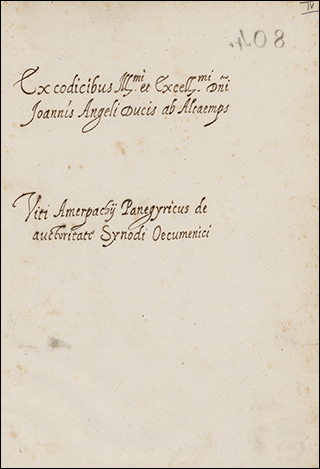 IV
804.
Ex codicibus Ill.mi et Excell.mi Dñi
Joannis Angeli Ducis ab Altaemps
Viti Amerpachij Panegyricus de
auctoritate Synodi Oecumenici